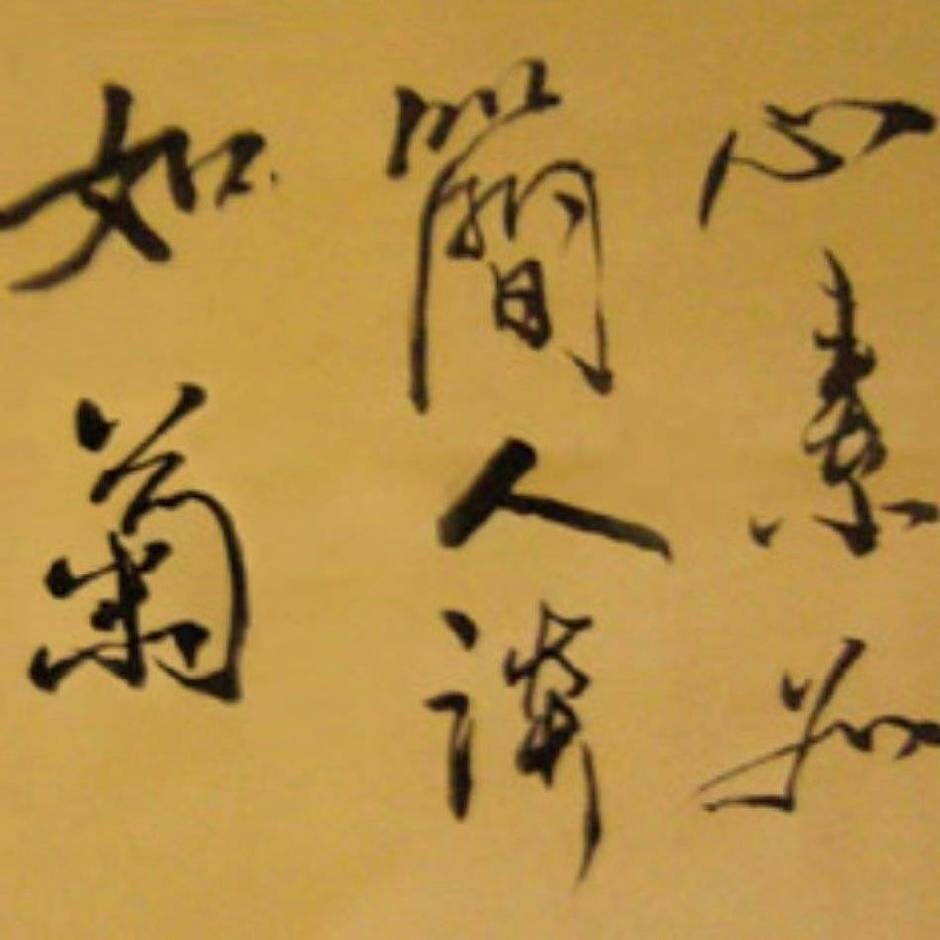 心素如
簡人談
如菊